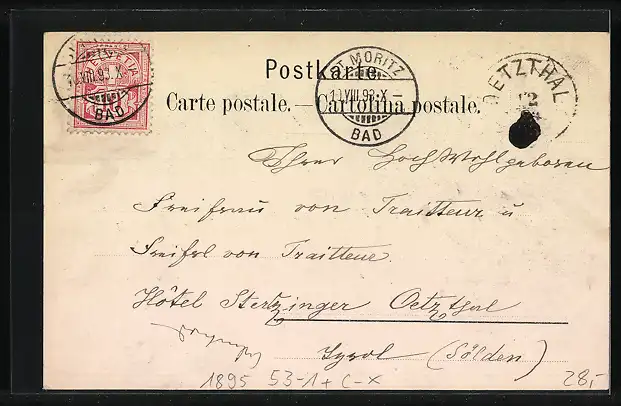 Postkarte.
Carte postale. — Cartolina postale.
HELVETIA
VIII.93.X
BAD
ST. MORITZ
11 VIII.93.X—
BAD
OETZTHAL
12
Ihrer HochWohlgeboren
Freifrau von Traitteur u
Freifrl von Traitteur.
Hôtel Sterzinger Oetzthal
Tyrol (Sölden)
1895 53-1+C-X
28,-